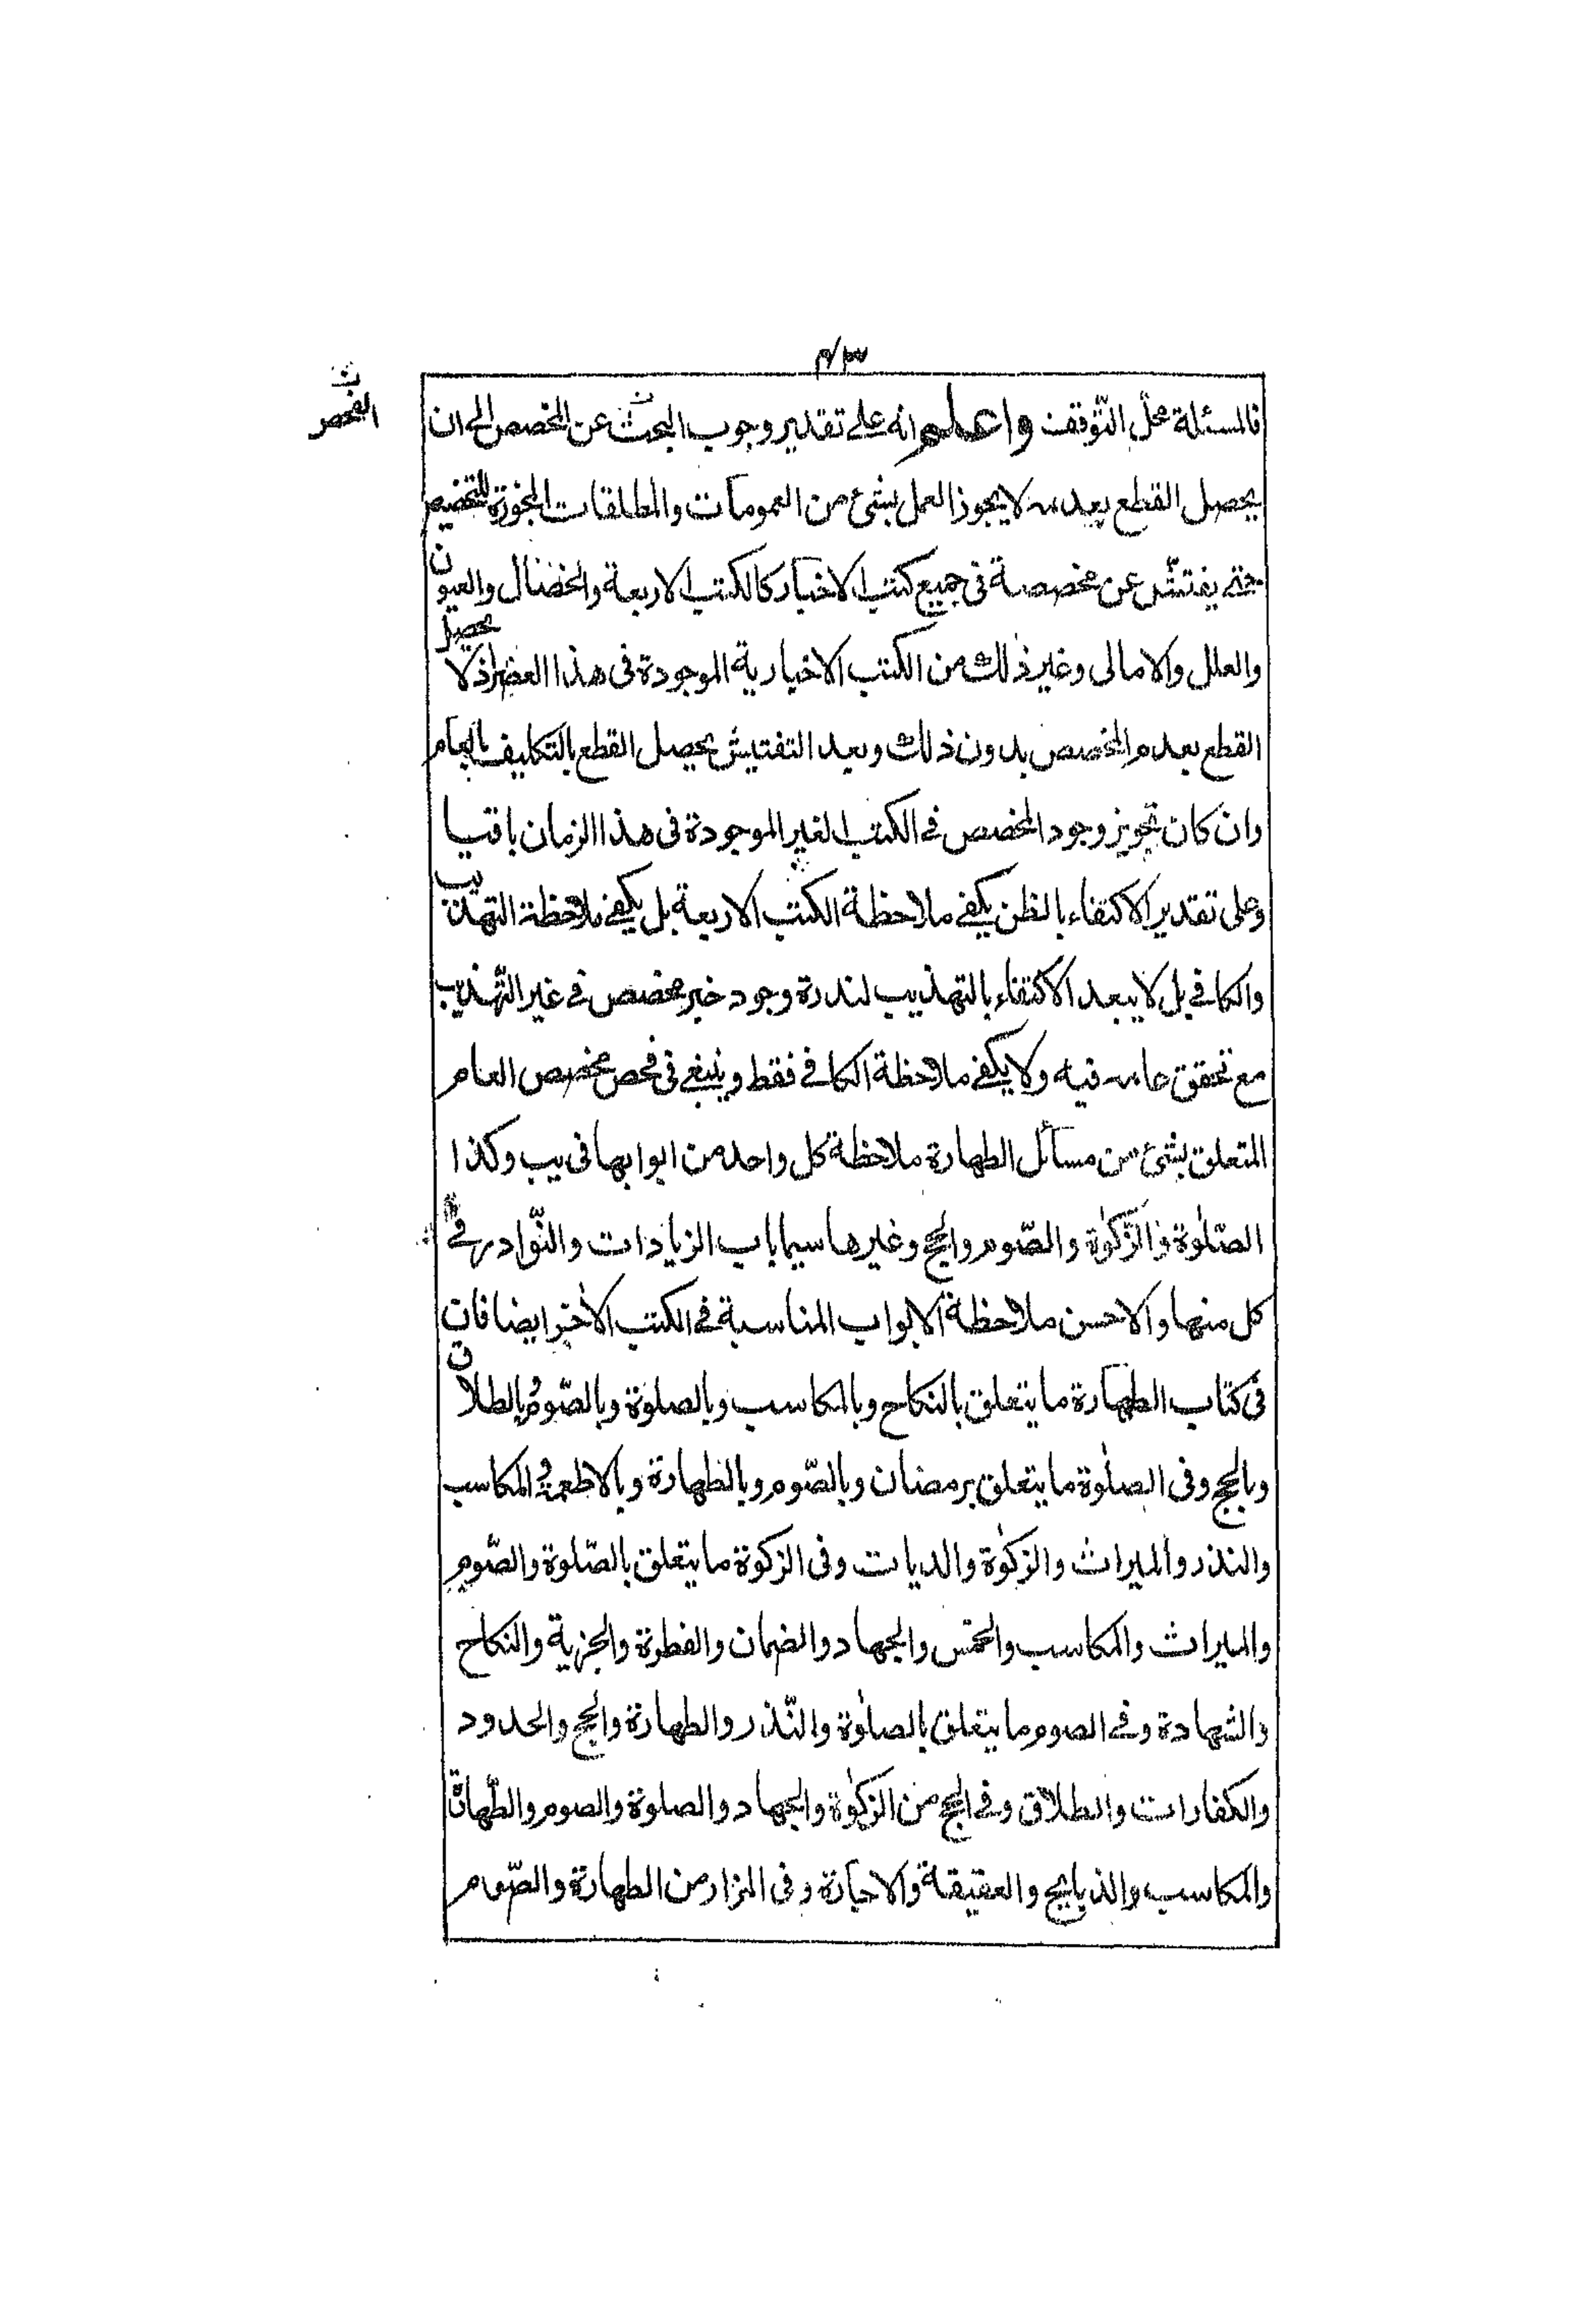 فالمسئلة محلّ التّوقف واعلم انه على تقدير وجوب البحث عن المخصص الى ان
الفحص
يحصل القطع بعدمه لا يجوز العمل بشئ من العمومات والمطلقات المجوزة للتخصيص
حتى يفتّش عن مخصصة فى جميع كتب الاخبار كالكتب الاربعة والخصال والعيون
والعلل والامالى وغير ذلك من الكتب الاخبارية الموجودة فى هذا العصر اذ لا يحصل
القطع بعدم المخصص بدون ذلك وبعد التفتيش يحصل القطع بالتكليف بالعام
وان كان تجويز وجود المخصص فى الكتب الغير الموجودة فى هذا الزمان باقيا
وعلى تقدير الاكتفاء بالظن يكفى ملاحظة الكتب الاربعة بل يكفى ملاحظة التهذيب
والكافى بل لا يبعد الاكتفاء بالتهذيب لندرة وجود خبر مخصص فى غير التّهذيب
مع تحقق عامه فيه ولا يكفى ملاحظة الكافى فقط وينبغى فى فحص مخصص العام
المتعلق بشئ من مسائل الطهارة ملاحظة كل واحد من ابوابها فى يب وكذا
الصّلوة والزّكوة والصّوم والحج وغيرها سيما باب الزيادات والنّوادر فى
كل منها والاحسن ملاحظة الابواب المناسبة فى الكتب الأخر ايضا فان
فى كتاب الطهارة ما يتعلق بالنكاح وبالمكاسب وبالصلوة وبالصّوم وبالطلاق
وبالحج وفى الصلوة ما يتعلق برمضان وبالصّوم وبالطهارة وبالاطعمة والمكاسب
والنذر والميراث والزكوة والديات وفى الزكوة ما يتعلق بالصّلوة والصّوم
والميراث والمكاسب والخمس والجهاد والضمان والفطرة والجزية والنكاح
والشهادة وفى الصوم ما يتعلق بالصلوة والنّذر والطهارة والحج والحدود
والكفارات والطلاق وفى الحج من الزكوة والجهاد والصلوة والصوم والطّهارة
والمكاسب والذبايح والعقيقة والاجارة وفى المزار من الطهارة والصّوم